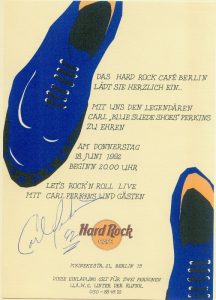 DAS HARD ROCK CAFÉ BERLIN
LÄDT SIE HERZLICH EIN...
MIT UNS DEN LEGENDÄREN
CARL „BLUE SUEDE SHOES" PERKINS
ZU EHREN
AM DONNERSTAG
18 JUNI 1992
BEGINN 20.00 UHR
LET'S ROCK'N ROLL LIVE
MIT CARL PERKINS UND GÄSTEN
Hard Rock
CAFE
21, BERLIN
DIESE EINLADUNG GILT FÜR ZWEI PERSONEN
U.A.W.G. UNTER DER RUFNR.